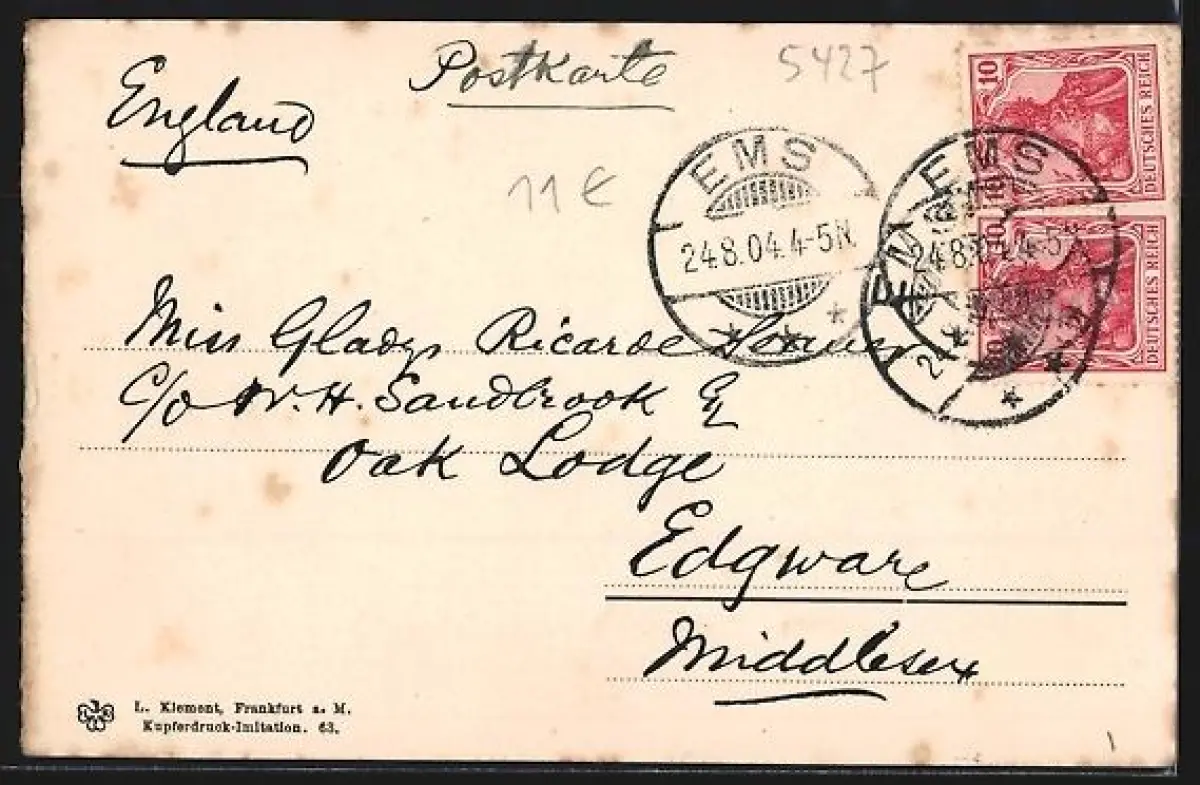 Postkarte
5427
England
11 €
10 DEUTSCHES REICH
10 DEUTSCHES REICH
EMS
24.8.04.4-5N.
EMS
24.8.04.4-5N.
EMS
Miss Gladys Ricarde
c/o W. H. Sandbrook Esq
Oak Lodge
Edgware
Middlesex
L. Klement, Frankfurt a. M.
Kupferdruck-Imitation. 63.